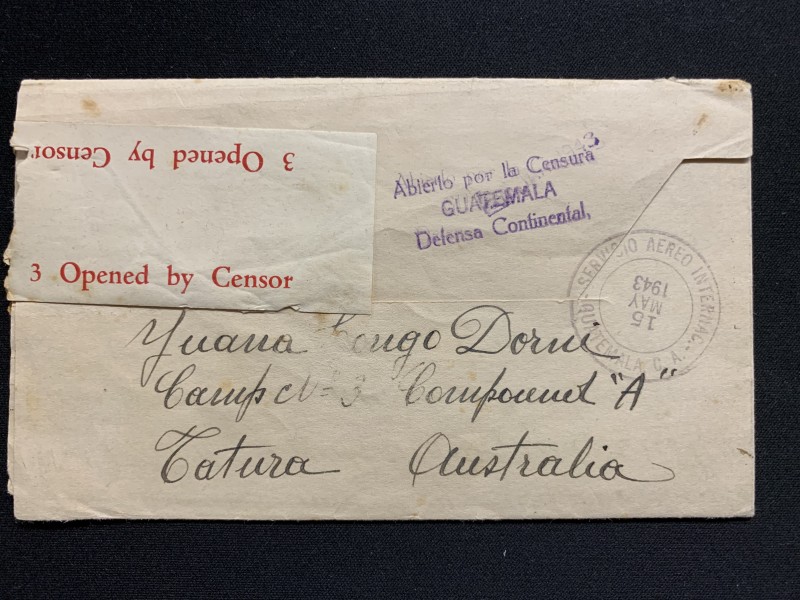 3 Opened by Censor
3 Opened by Censor
Abierto por la Censura
GUATEMALA
Defensa Continental,
SERVICIO AEREO INTERNAC.
15
MAY
1943
GUATEMALA C. A.
Yuana Congo Dorni
Camp No 3 Compouned "A"
Tatura Australia